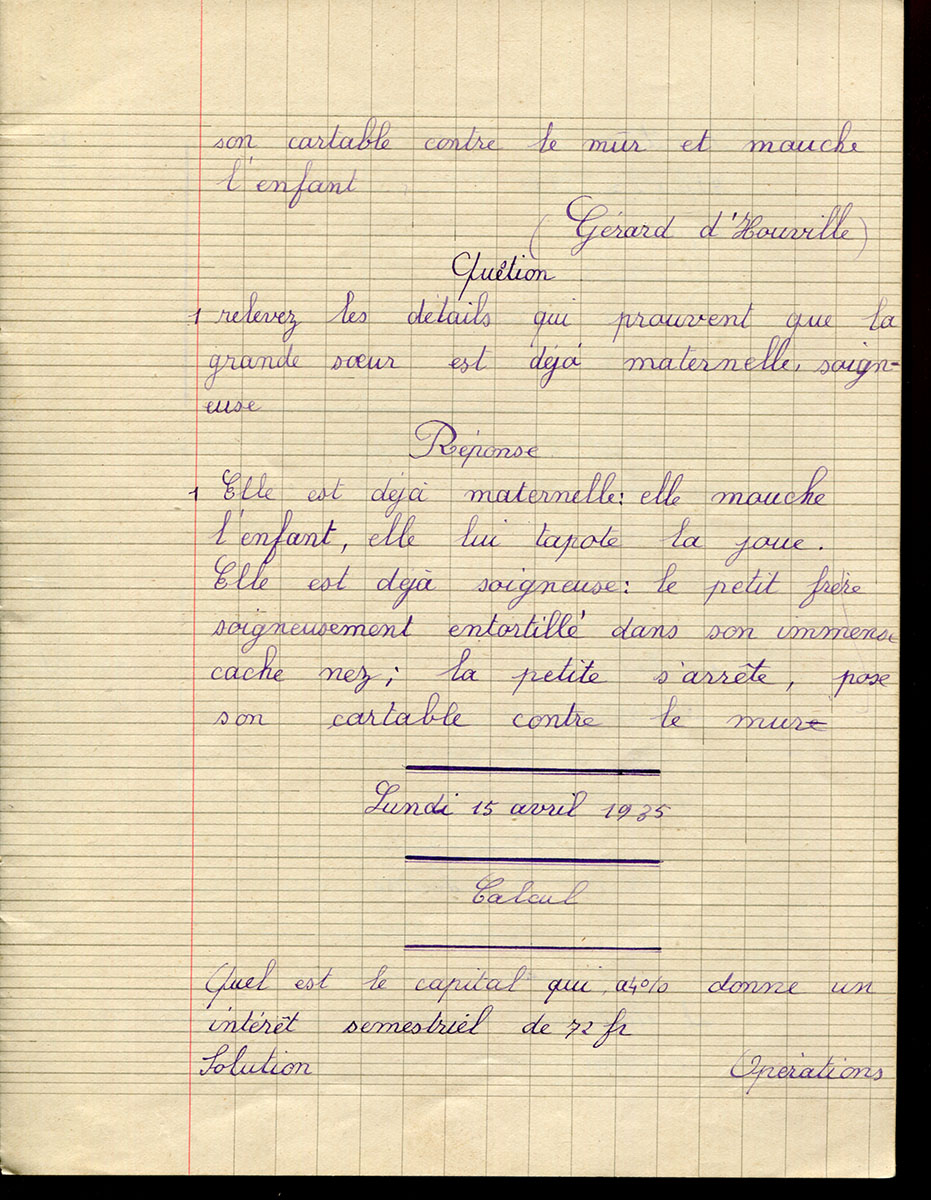 son cartable contre le mur et mouche
l'enfant
(Gérard d'Houville)
Quêtion
1 relevez les détails qui prouvent que la
grande sœur est déjà maternelle, soign-
euse
Réponse
1 Elle est déjà maternelle: elle mouche
l'enfant, elle lui tapote la joue.
Elle est déjà soigneuse: le petit frère
soigneusement entortillé dans son immense
cache nez; la petite s'arrête, pose
son cartable contre le mure
Lundi 15 avril 1935
Calcul
Quel est le capital qui a4% donne un
intérêt semestriel de 72 fr
Solution Opérations